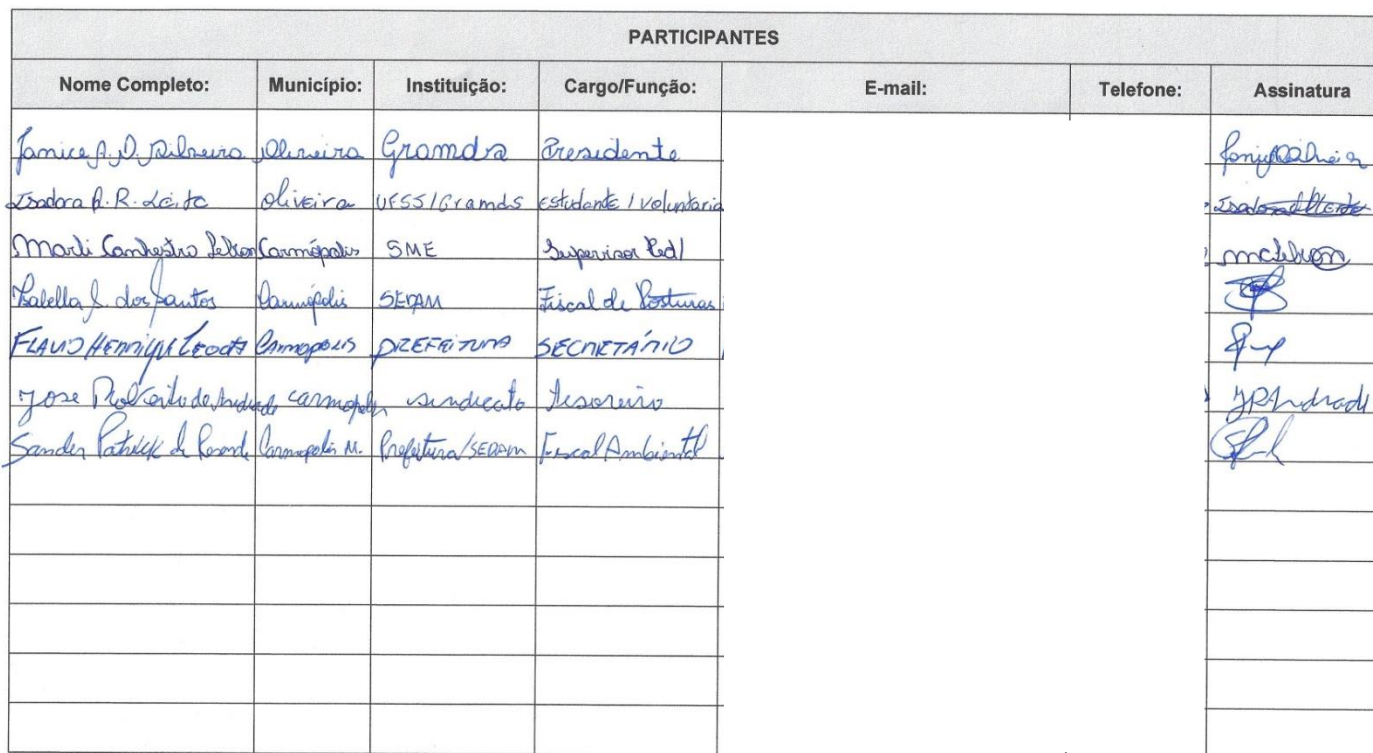 PARTICIPANTES
Nome Completo: Município: Instituição: Cargo/Função: E-mail: Telefone: Assinatura
Janice A. D. Silveira Oliveira Gramds Presidente
Isadora A. R. Leite Oliveira UFSS/Gramds Estudante / Voluntaria
Marli Canhestro Carmópolis SME Supervisor Ped/
Isabella S. dos Santos Carmópolis SEDAM Fiscal de Posturas
FLAVIO HENRIQUE Carmopolis PREFEITURA SECRETÁRIO
Jose de Andrade carmopolis sindicato tesoreiro JRAndrade
Sander Patrick de Resende Carmopolis M. Prefeitura/SEDAM Fiscal Ambiental